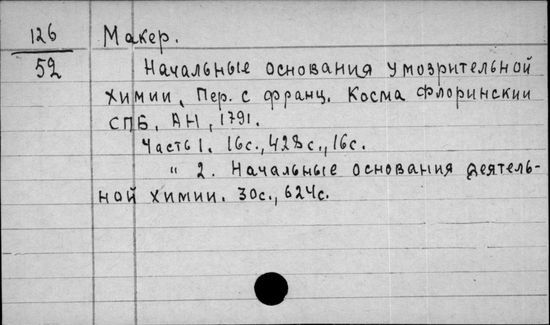 126 Макер.
52 Начальные основания умозрительной
химии. Пер. с франц. Косма Флоринский
СПБ, АН, 1791.
Часть 1. 16с., 428с., 16с.
" 2. Начальные основания деятель-
ной химии. 30с., 624с.